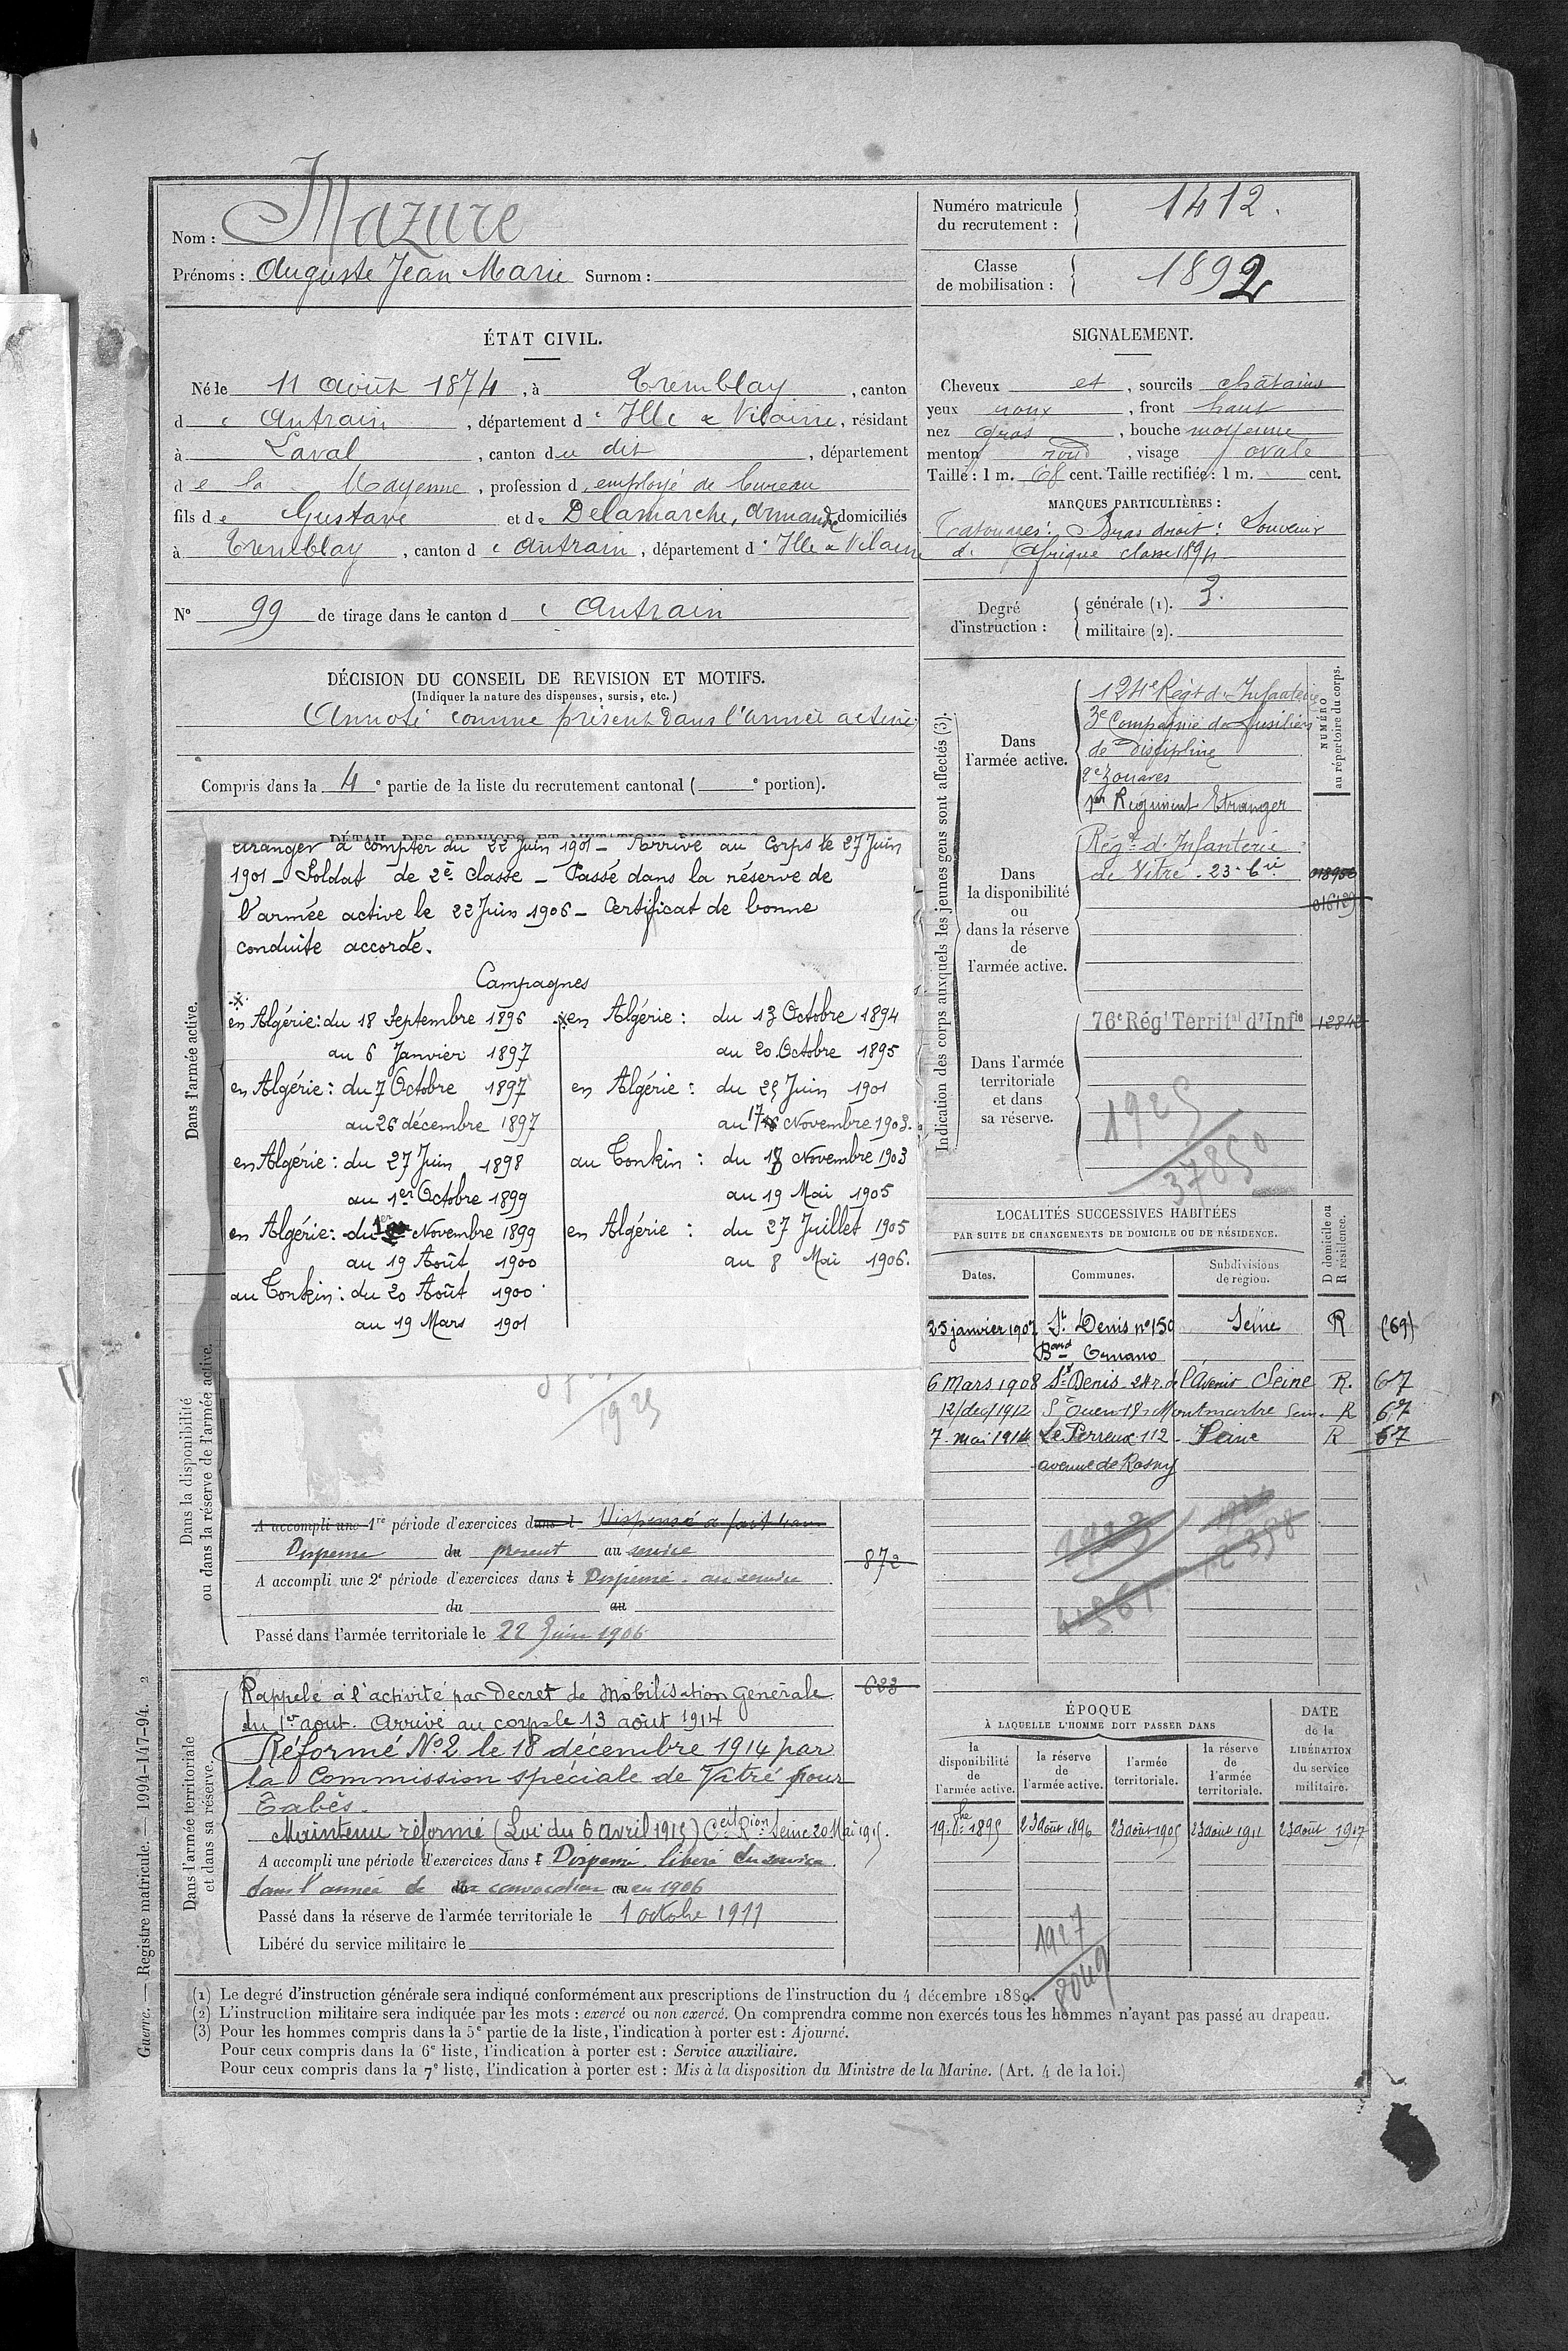 Nom : Mazure
Prénoms : Auguste Jean Marie Surnom :
Numéro matricule du recrutement : 1412.
Classe de mobilisation : 1892
ÉTAT CIVIL.
Né le 11 août 1874, à Tremblay, canton
de Antrain, département d'Ille & Vilaine, résidant
à Laval, canton du dit, département
de la Mayenne, profession d employé de bureau
fils de Gustave et de Delamarche, Armande domiciliés
à Tremblay, canton d'Antrain, département d'Ille & Vilaine
N° 99 de tirage dans le canton d'Antrain
DÉCISION DU CONSEIL DE REVISION ET MOTIFS.
(Indiquer la nature des dispenses, sursis, etc.)
Annoté comme présent dans l'armée active
Compris dans la 4e partie de la liste du recrutement cantonal ( e portion).
SIGNALEMENT.
Cheveux et, sourcils châtains
yeux roux, front haut
nez gros, bouche moyenne
menton rond, visage ovale
Taille : 1 m. 68 cent. Taille rectifiée : 1 m. cent.
MARQUES PARTICULIÈRES :
Tatouages : Bras droit : Souvenir
d'Afrique classe 1894
Degré d'instruction :
générale (1). 3.
militaire (2).
DÉTAIL DES SERVICES ET MUTATIONS DIVERSES
Dans l'armée active.
étranger à compter du 22 Juin 1901 – Arrivé au Corps le 27 Juin
1901 – Soldat de 2e classe – Passé dans la réserve de
l'armée active le 22 Juin 1906 – Certificat de bonne
conduite accordé.
Campagnes
x
en Algérie : du 18 Septembre 1896
au 6 Janvier 1897
en Algérie : du 7 Octobre 1897
au 26 décembre 1897
en Algérie : du 27 Juin 1898
au 1er Octobre 1899
en Algérie : du 1er Novembre 1899
au 19 Août 1900
au Tonkin : du 20 Août 1900
au 19 Mars 1901
x en Algérie : du 13 Octobre 1894
au 20 Octobre 1895
en Algérie : du 25 Juin 1901
au 17 Novembre 1903.
au Tonkin : du 18 Novembre 1903
au 19 Mai 1905
en Algérie : du 27 Juillet 1905
au 8 Mai 1906.
1925
Dans la disponibilité ou dans la réserve de l'armée active.
A accompli une 1re période d'exercices dans l Dispensé a fait 4 ans
Dispense du present au service
872
A accompli une 2e période d'exercices dans l Dispensé au service
du au
Passé dans l'armée territoriale le 22 Juin 1906
Dans l'armée territoriale et dans sa réserve.
Rappelé à l'activité par Decret de Mobilisation Générale
683
du 1er aout. Arrivé au corps le 13 août 1914
Réformé N°2 le 18 décembre 1914 par
la Commission spéciale de Vitré pour
Tabès.
Maintenu réformé (Loi du 6 avril 1915) Ceil Rion Seine 20 Mai 1915.
A accompli une période d'exercices dans l Dispensé. libéré du service
dans l'année de du convocation au en 1906
Passé dans la réserve de l'armée territoriale le 1 octobre 1911
Libéré du service militaire le
Indication des corps auxquels les jeunes gens sont affectés (3).
NUMÉRO au répertoire du corps.
Dans l'armée active.
124e Régt d'Infanterie
3e Compagnie de Fusiliers
de Discipline
2e Zouaves
1er Régiment Etranger
Dans la disponibilité ou dans la réserve de l'armée active.
Régt d'Infanterie
de Vitré - 23-6ie
018956
016129
Dans l'armée territoriale et dans sa réserve.
76e Régt Territal d'Infie
12842
1925
37850
LOCALITÉS SUCCESSIVES HABITÉES
PAR SUITE DE CHANGEMENTS DE DOMICILE OU DE RÉSIDENCE.
Dates. Communes. Subdivisions de région. D domicile ou R résidence.
25 janvier 1907 St Denis n° 150 Seine R (69)
Bard Ornano
6 Mars 1908 St Denis 24 r. de l'Avenir Seine R. 67
12/dec/1912 St Ouen 18 r Montmartre Seine R 67
7 mai 1914 Le Perreux 112 - Seine R 67
avenue de Rosny
1923
ÉPOQUE
À LAQUELLE L'HOMME DOIT PASSER DANS
la disponibilité de l'armée active.
la réserve de l'armée active.
l'armée territoriale.
la réserve de l'armée territoriale.
DATE de la LIBÉRATION du service militaire.
19. 8bre 1895 23 août 1896 23 août 1905 23 août 1911 23 août 1917
1927
8049
(1) Le degré d'instruction générale sera indiqué conformément aux prescriptions de l'instruction du 4 décembre 1889.
(2) L'instruction militaire sera indiquée par les mots : exercé ou non exercé. On comprendra comme non exercés tous les hommes n'ayant pas passé au drapeau.
(3) Pour les hommes compris dans la 5e partie de la liste, l'indication à porter est : Ajourné.
Pour ceux compris dans la 6e liste, l'indication à porter est : Service auxiliaire.
Pour ceux compris dans la 7e liste, l'indication à porter est : Mis à la disposition du Ministre de la Marine. (Art. 4 de la loi.)
Guerre. — Registre matricule. — 1994-147-94. 2